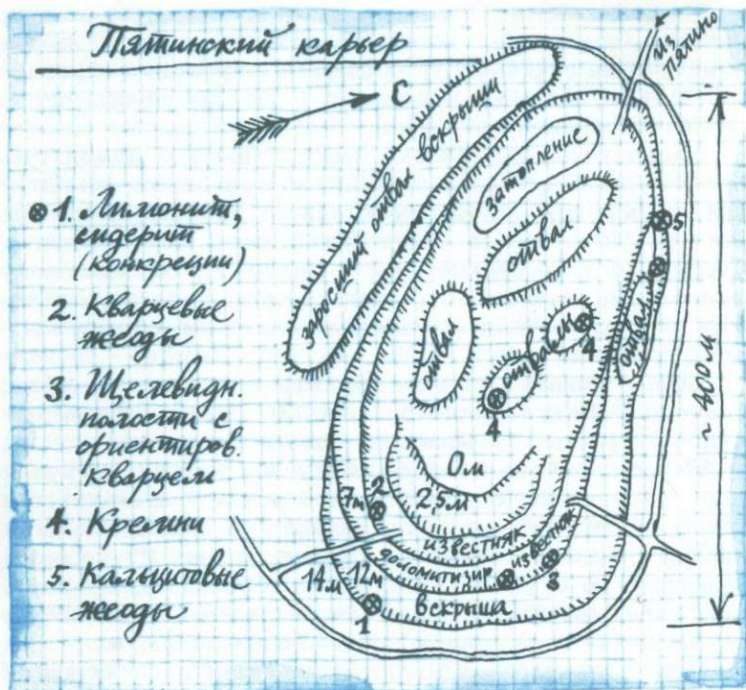 Пятинский карьер
С
из Пятино
⊗ 1. Лимонит,
сидерит
(конкреции)
2. Кварцевые
жеоды
3. Щелевидн.
полости с
ориентиров.
кварцем
4. Кремни
5. Кальцитовые
жеоды
заросший отвал вскрыши
затопление
отвал
отвал
отвалы
отвал
5
4
4
~ 400 м
0 м
2,5 м
7 м
2
известняк
доломитизир. известняк
3
12 м
14 м
вскрыша
1